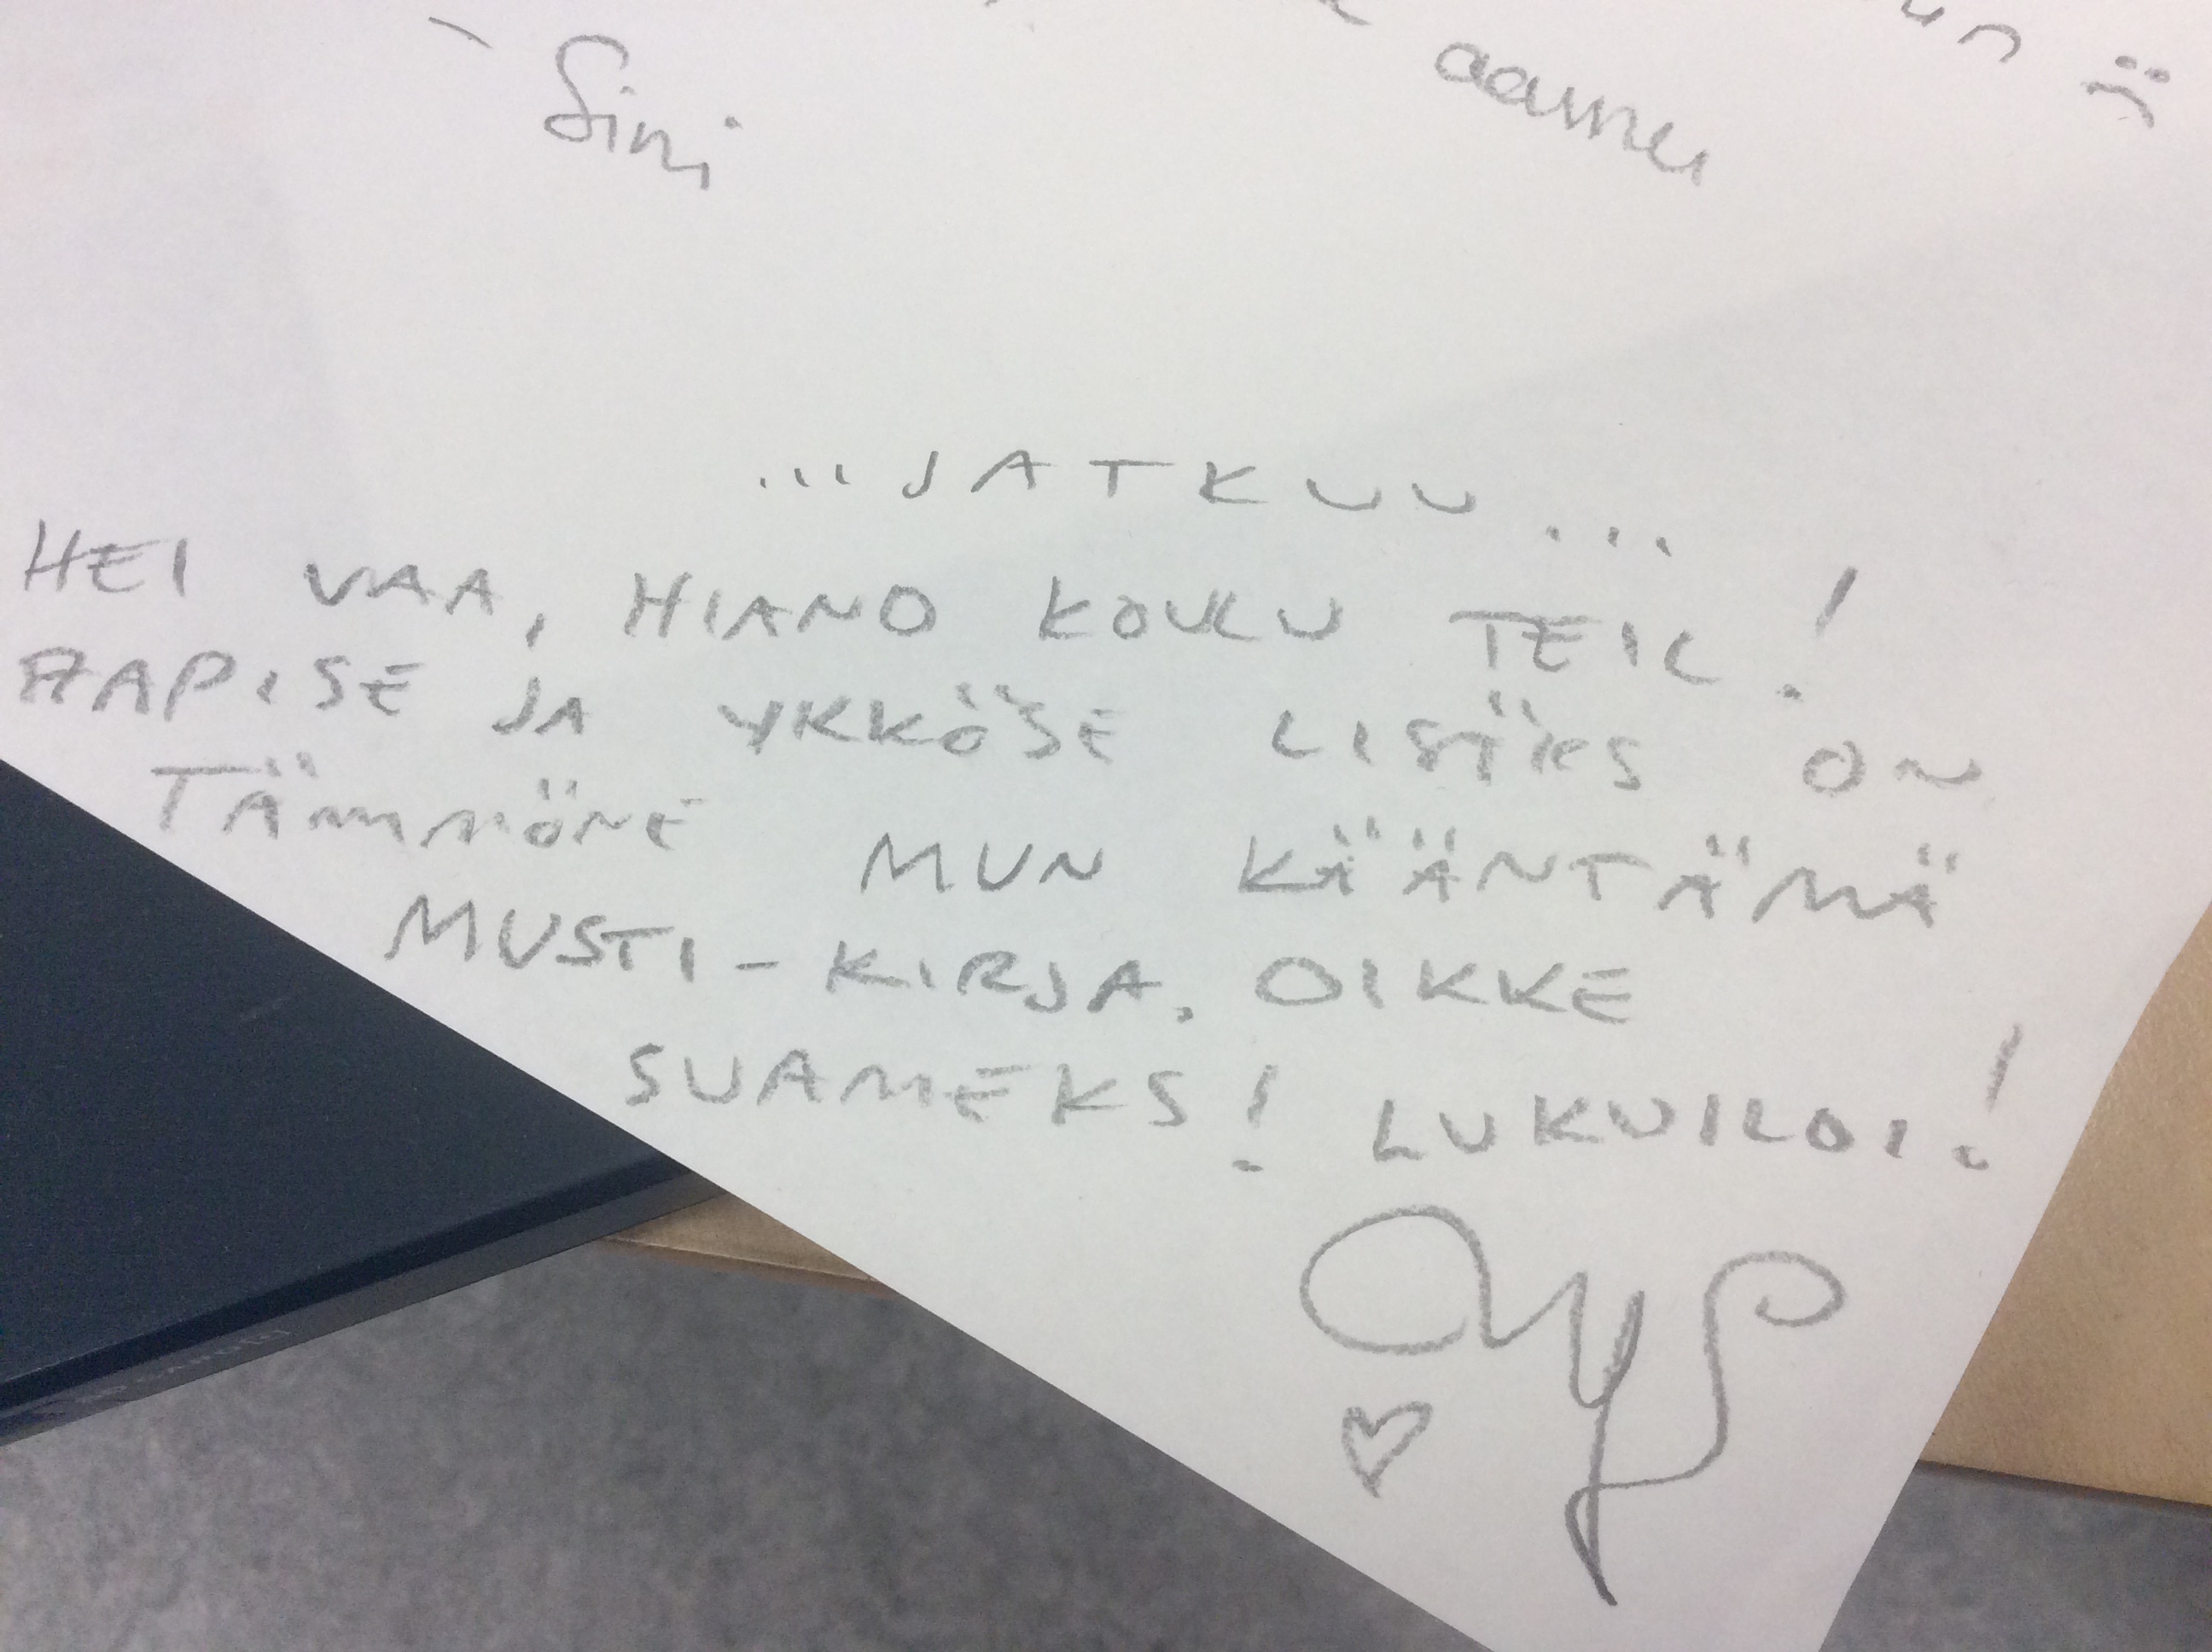 - Sini
...JATKUU...
HEI VAA, HIANO KOULU TEIL!
AAPISE JA YKKÖSE LISÄKS ON
TÄMMÖNE MUN KÄÄNTÄMÄ
MUSTI-KIRJA. OIKKE
SUAMEKS! LUKUILOI!